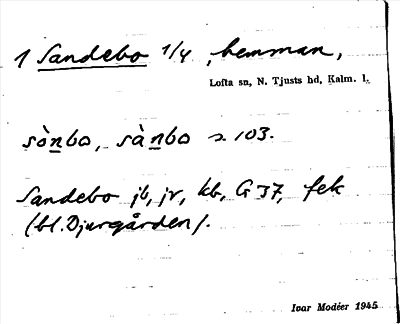 1 Sandebo 1/4, hemman,
Lofta sn, N. Tjusts hd, Kalm. l.
sònbo, sànbo 2.103.
Sandebo jb, jr, kb, G 37, fek
(bl. Djurgården).
Ivar Modéer 1945